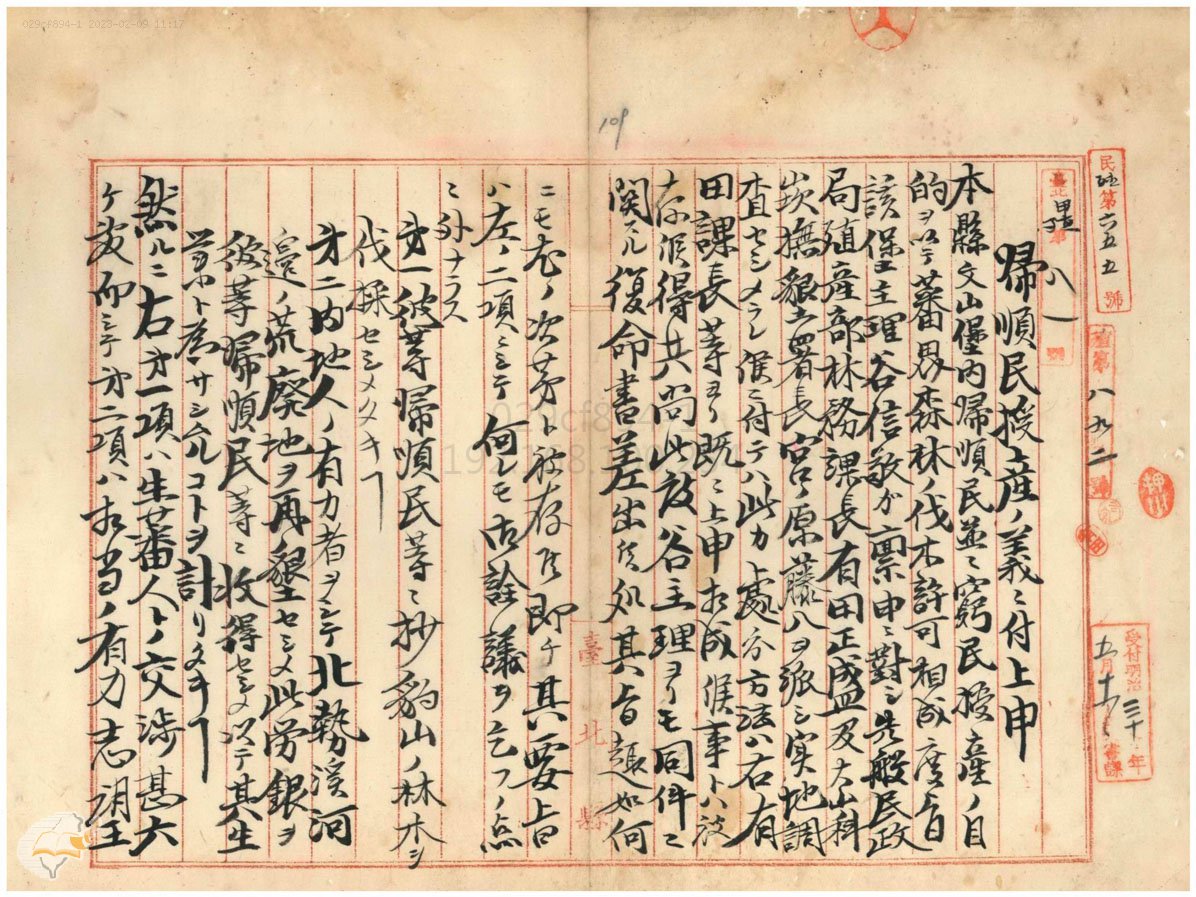 029cf894-1 2023-02-09 11:17
109
民殖第六五五號
殖第八九二號
受付明治三十年
五月
臺北
八一
帰順民授産ノ義ニ付上申
本縣文山堡内帰順民並ニ窮民授産ノ目
的ヲ以テ蕃界森林ノ伐木許可相成度旨
該堡主理谷信敬ガ稟申ニ對シ先般民政
局殖産部林務課長有田正盛及大嵙
崁撫墾署長宮ノ原藤八ヲ派シ実地調
査セシメラレ候ニ付テハ此カ處分方法ハ右有
田課長等ヨリ既ニ上申相成候事トハ被
存候得共尚此段谷主理ヨリモ同件ニ
関スル復命書差出候処其旨趣如何
ニモ尤ノ次第ト被存候即チ其要旨
ハ左ノ二項ニシテ何レモ御詮議ヲ乞フノ点
ニ外ナラス
第一彼等帰順民等ニ抄豹山ノ林木ヲ
伐採セシメタキコト
第二内地人ノ有力者ヲシテ北勢溪河
邉ノ荒廢地ヲ再墾セシメ此労銀ヲ
彼等帰順民等ニ收得セシメ以テ其生
業ト為サシムルコトヲ計リタキコト
然ルニ右第一項ハ生蕃人トノ交渉甚大
ケ敷而シテ第二項ハ相当ノ有力志望
臺北縣
029cf894
192.168.1